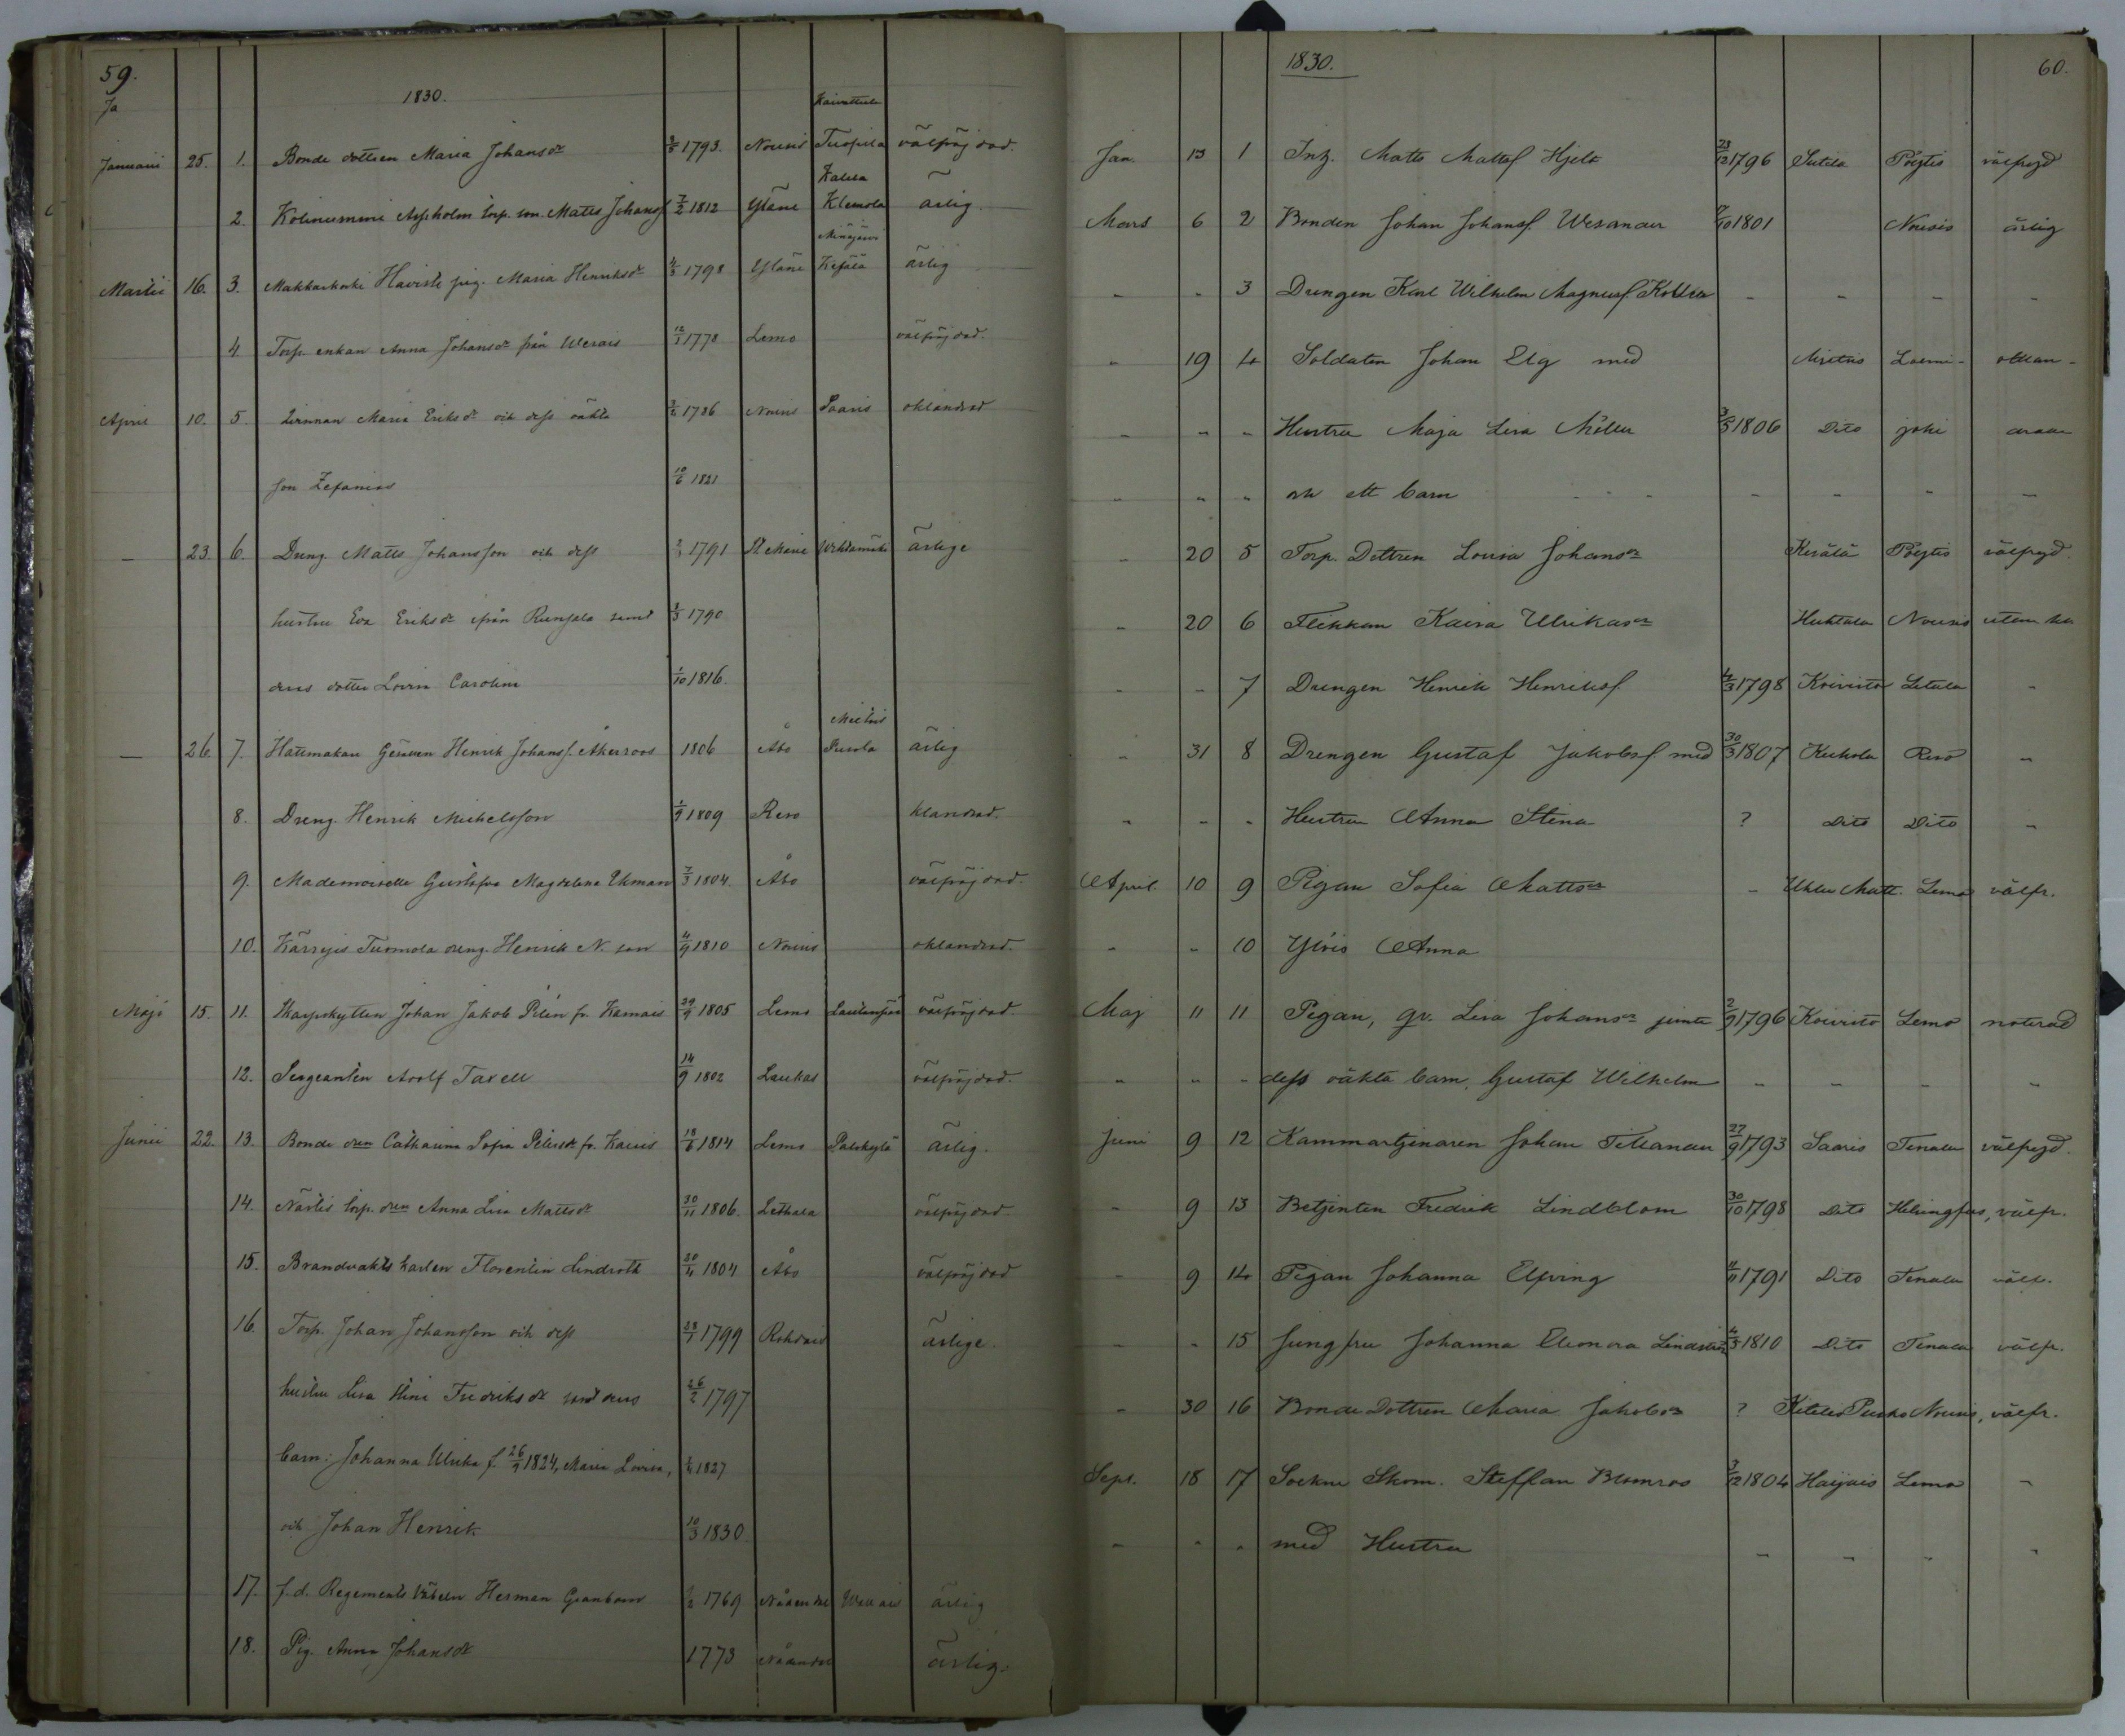 59.
Ja
1830.
Januarii 25. 1. Bonde dottren Maria Johansdr 1793. Nousis Tuopila välfräjdad.
2. torp. son. Matts Johansf 7/2 1812 Yläne Kalela Klemola ärlig.
Martii 16. 3. Haviste pig. Maria Henriksdr 4/3 1798 Yläne ärlig
4. Torp. enkan Anna Johansdr från Werais 12/1 1778 Lemo välfräjdad.
April 10. 5. Qvinnan Maria Eriksdr och dess oäkta 1786 Nousis Saaris oklandrad
son Zefanias 10/6 1821
— 23. 6. Dreng. Matts Johansson och dess 1791 St Marie ärlige
hustru Eva Eriksdr ifrån Runsala samt 1/3 1790
deras dotter Lovisa Carolina 1/10 1816.
— 26. 7. Hattmakare Gesellen Henrik Johansf. Åkerroos 1806 Åbo ärlig
8. Dreng. Henrik Michelsson 1/9 1809 Reso klandrad.
9. Mademoiselle Gustafva Magdalena Ekman 7/3 1804. Åbo välfräjdad.
10. Kärryis Tuomola dreng. Henrik N. son 4/9 1810 Nousis oklandrad.
Maji 15. 11. Skarpskytten Johan Jakob Pilén fr. Kamais 29/9 1805 Lemo välfräjdad
12. Sergeanten Adolf Taxell 14/9 1802 Laukas välfräjdad.
Junii 22. 13. Bonde dren Catharina Sofia Petersdr fr. Kaiais 18/6 1814 Lemo Palokylä ärlig.
14. Närlis torp. dren Anna Lisa Mattsdr 30/11 1806. Lethala välfräjdad.
15. Brandvakts karlen Florentin Lindroth 30/4 1804 Åbo välfräjdad
16. Torp. Johan Johansson och dess 28/1 1799 ärlige.
hustru Lisa Stina Fredriksdr samt deras 26/2 1797
barn: Johanna Ulrika f. 26/9 1824, Maria Lovisa, 1827
och Johan Henrik 10/3 1830.
17. f.d. Regements Väbeln Herman Granbom 1769 Nådendal ärlig
18. Pig. Anna Johansdr 1773 Nådendal ärlig.
1830.
60.
Jan. 13 1 Inh. Matts Mattsf Hjelt 23/12 1796 Sutila Pöytis välfrejd
Mars 6 2 Bonden Johan Johansf. Wesander 1801 Nousis ärlig
- - 3 Drengen Karl Wilhelm Magnusf. - - - -
- 19 4 Soldaten Johan Elg med Mietois Loimi- oklan-
- - - Hustru Maja Lisa Möller 3/5 1806 Dito joki drade
- - - och ett barn - - - -
- 20 5 Torp. Dottren Lovisa Johansdr Kesälä Pöytis välfrejd.
- 20 6 Flickan Kaisa Ulrikasdr Huhtala Nousis
- - 7 Drengen Henrik Henriksf. 4/3 1798 Koivisto Letala -
- 31 8 Drengen Gustaf Jakobsf. med 30/3 1807 Reso -
- - - Hustru Anna Stina ? Dito Dito -
April. 10 9 Pigan Sofia Mattsdr - Uhlu Matt. Lemo välfr.
- - 10 Ylöis Anna
Maj 11 11 Pigan, qv. Lisa Johansdr jemte 2/9 1796 Koivisto Lemo noterad
- - - dess oäkta barn, Gustaf Wilhelm - - - -
Juni 9 12 Kammartjenaren Johan Tillander 27/9 1793 Saaris Tenala välfrejd.
- 9 13 Betjenten Fredrik Lindblom 30/10 1798 Dito Helsingfors, välfr.
- 9 14 Pigan Johanna Elfving 1791 Dito Tenala välfr.
- - 15 Jungfru Johanna Eleonora Lindström 4/5 1810 Dito Tenala välfr.
- 30 16 Bonde Dottren Maria Jakobsdr ? Nousis, välfr.
Sept. 18 17 Sockne Skom. Steffan Blomroos 3/12 1804 Haijais Lemo -
- - - med Hustru - - - -